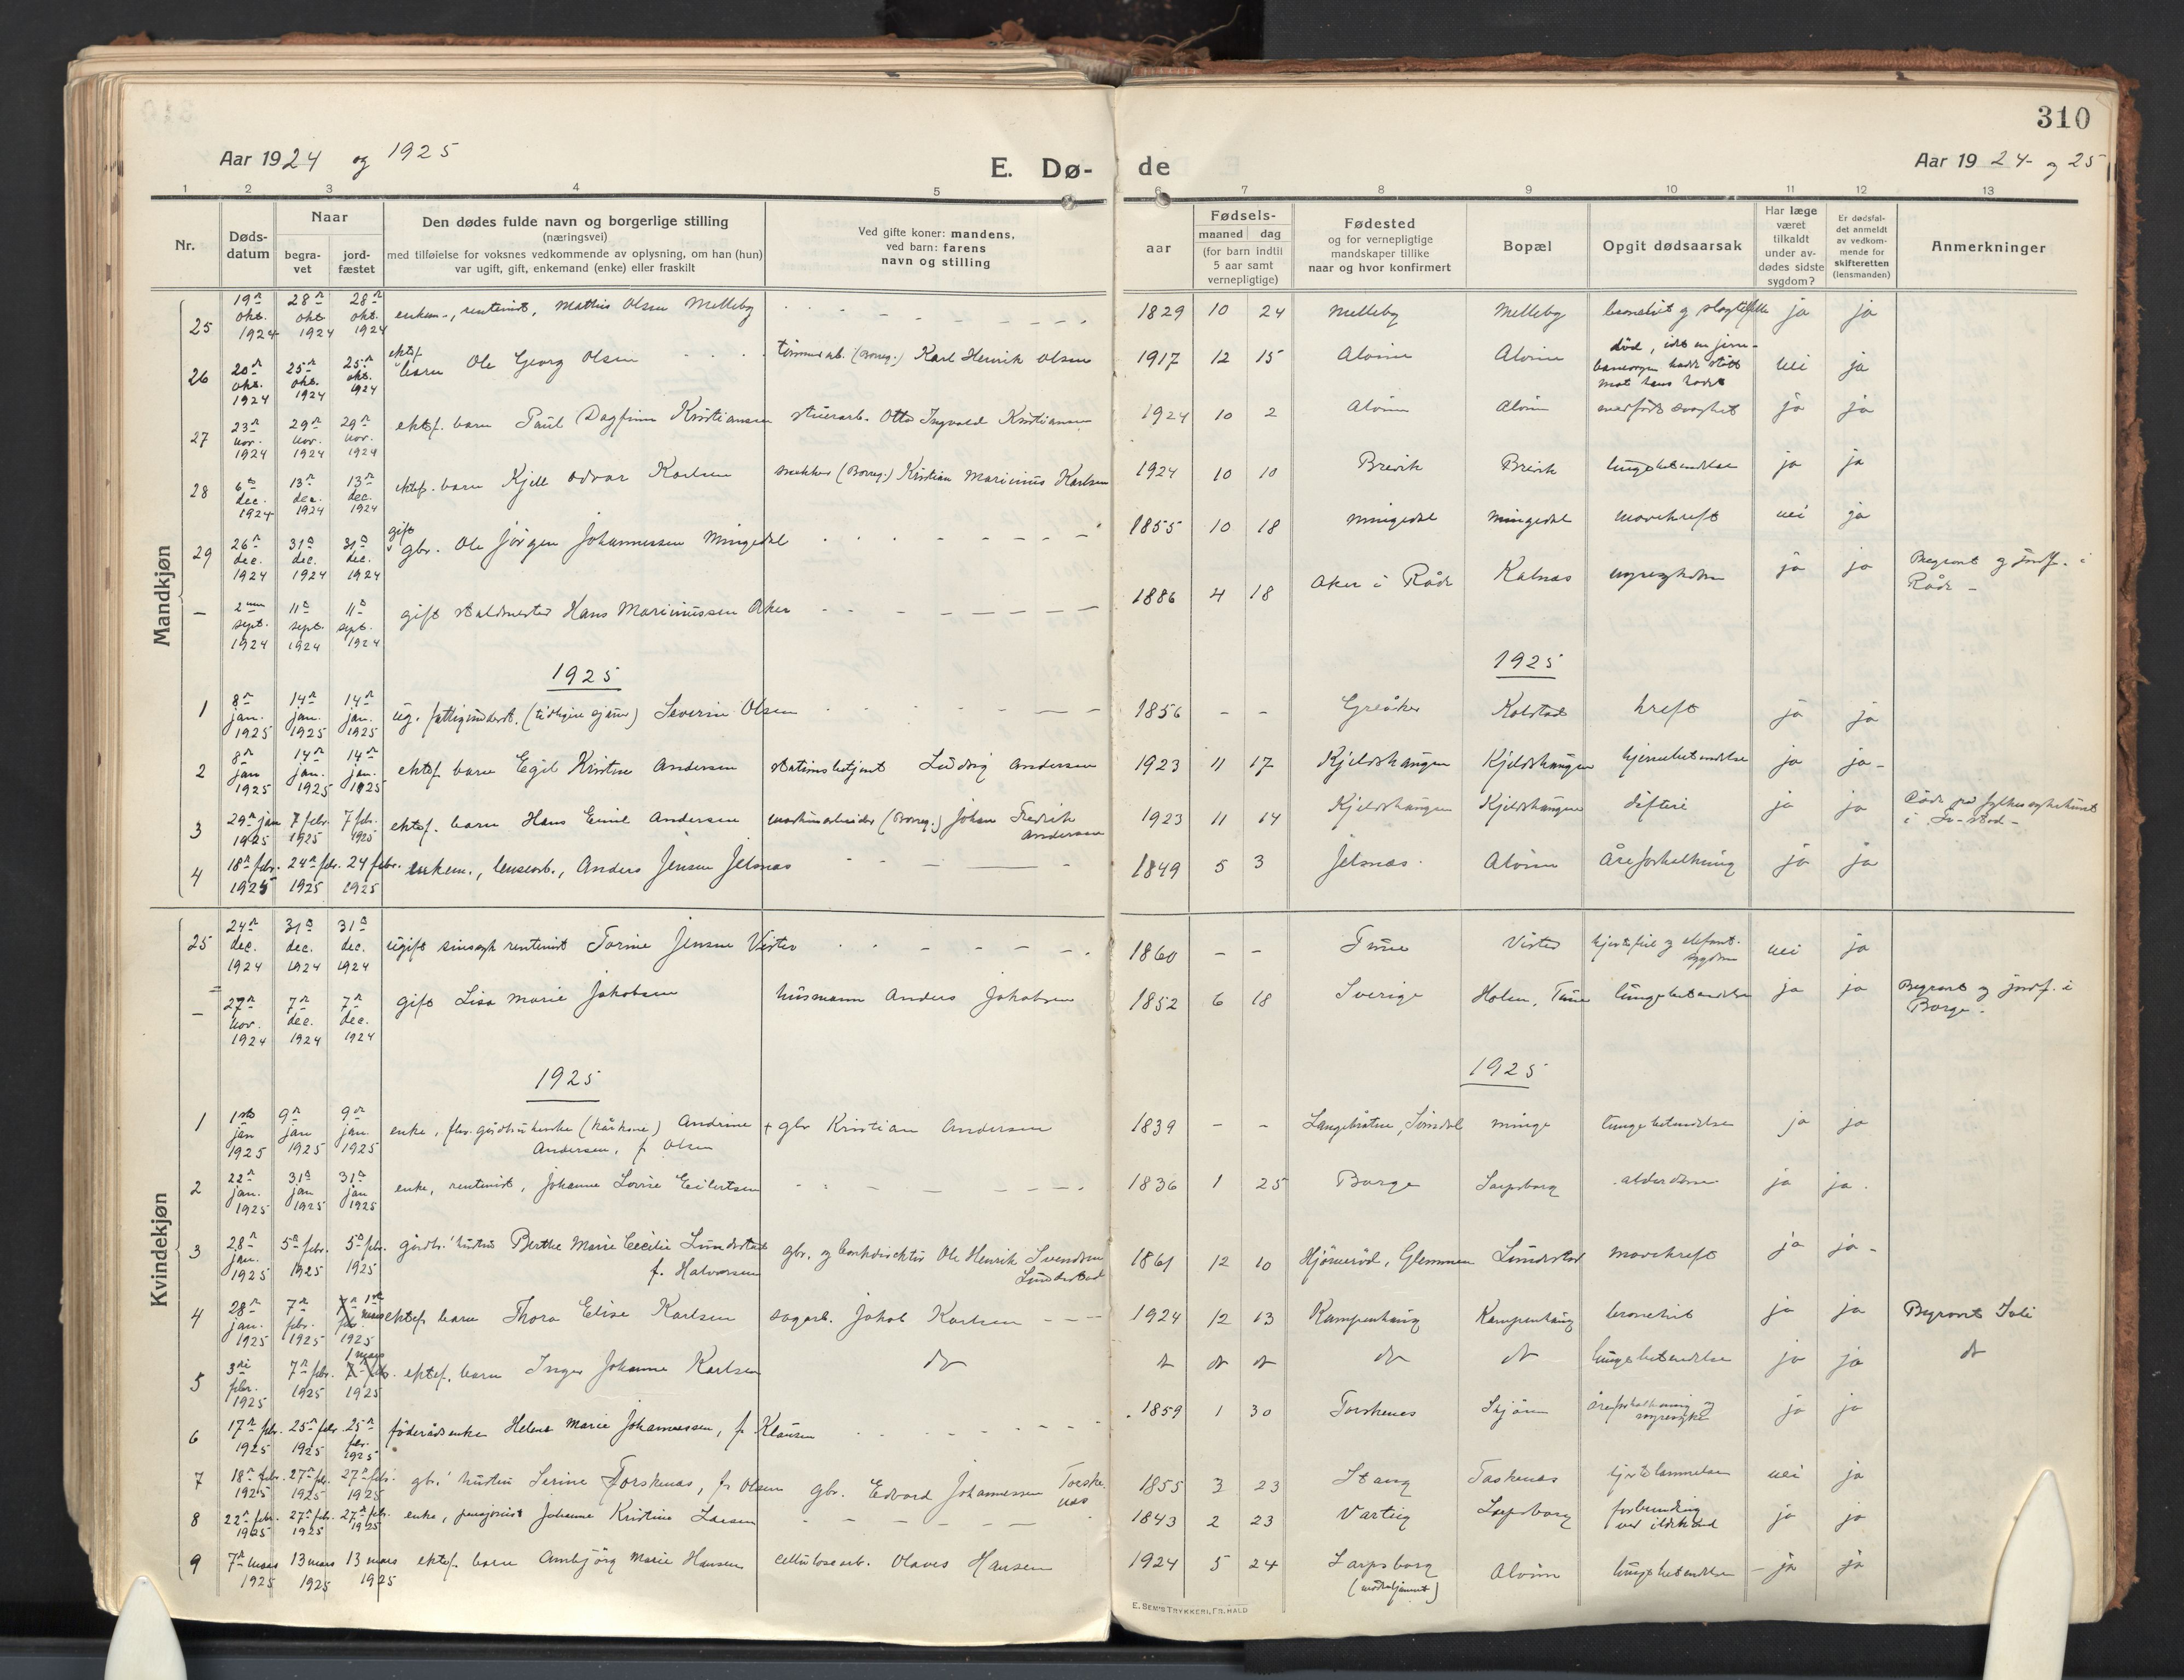 310
Aar 1924 og 1925
E. Dø- de
Aar 1924 og 25
1 2 3 4 5 6 7 8 9 10 11 12 13
Nr.
Døds-
datum
Naar
begra-
vet
jord-
fæstet
Den dødes fulde navn og borgerlige stilling
(næringsvei)
med tilføielse for voksnes vedkommende av oplysning, om han (hun)
var ugift, gift, enkemand (enke) eller fraskilt
Ved gifte koner: mandens,
ved barn: farens
navn og stilling
aar
Fødsels-
maaned dag
(for barn indtil
5 aar samt
vernepligtige)
Fødested
og for vernepligtige
mandskaper tillike
naar og hvor konfirmert
Bopæl
Opgit dødsaarsak
Har læge
været
tilkaldt
under av-
dødes sidste
sygdom?
Er dødsfal-
det anmeldt
av vedkom-
mende for
skifteretten
(lensmanden)
Anmerkninger
Mandkjøn
25 19n okt. 1924 28n okt. 1924 28n okt. 1924 enkem., rentenist, Mathis Olsen Melleby 1829 10 24 Melleby Melleby bronchit og ja ja
26 20n okt. 1924 25n okt. 1924 25n okt. 1924 ektef. barn Ole Georg Olsen tømmerarb. (Borreg.) Karl Henrik Olsen 1917 12 15 Alvim Alvim død, idet en jern-
banevogn hadde støtt
mot hans hode nei ja
27 23n nov. 1924 29n nov. 1924 29n nov. 1924 ektef. barn Paul Dagfinn Kristiansen stuerarb. Otto Ingvald Kristiansen 1924 10 2 Alvim Alvim medfødt svaghet ja ja
28 6te dec. 1924 13n dec. 1924 13n dec. 1924 ektef. barn Kjell Odvar Karlsen snekker (Borreg.) Kristian Marinius Karlsen 1924 10 10 Brevik Brevik lungebetendelse ja ja
29 26n dec. 1924 31s dec. 1924 31s dec. 1924 gift gbr. Ole Jørgen Johannessen Mingedal 1855 10 18 Mingedal Mingedal mavekreft nei ja
— 2nen sept. 1924 11s sept. 1924 11s sept. 1924 gift staldmester Hans Marinussen Aker 1886 4 18 Aker i Råde Kalnæs nyresykdom ja ja Begravet og jordf. i
Råde -
1925 1925
1 8n jan. 1925 14n jan. 1925 14n jan. 1925 ug. fattigunderst. (tidligere sjøm) Severin Olsen 1856 - - Greåker Kolstad kreft ja ja
2 8n jan 1925 14n jan. 1925 14n jan. 1925 ektef. barn Egil Kristen Andersen stationsbetjent Ludvig Andersen 1923 11 17 Kjeldshaugen Kjeldshaugen hjernebetendelse ja ja -
3 29n jan 1925 7 febr. 1925 7 febr. 1925 ektef. barn Hans Emil Andersen maskinarbeider (Borreg.) Johan Fredrik
Andersen 1923 11 14 Kjeldshaugen Kjeldshaugen difteri ja ja Døde på fylkessykehuset
i Fr-stad -
4 18n febr. 1925 24n febr. 1925 24 febr. 1925 enkem., lensearb., Anders Jensen Jelsnæs 1849 5 3 Jelsnæs Alvim Åreforkalkning ja ja
Kvindekjøn
25 24n dec. 1924 31s dec. 1924 31s dec. 1924 ugift sinssyk rentenist Torine Jensen Vister 1860 - - Tune Vister hjertefeil og elefant.
sygdom nei ja
— 27n nov. 1924 7n dec. 1924 7n dec. 1924 gift Lisa Marie Jakobsen husmann Anders Jakobsen 1852 6 18 Sverige Holen, Tune lungebetendelse ja ja Begravet og jordf. i
Borge -
1925 1925
1 1ste jan 1925 9n jan 1925 9de jan. 1925 enke, (kårkone) Andrine
Andersen, f Olsen + gbr Kristian Andersen 1839 - - Langebåten, Minge lungebetendelse ja ja
2 22n jan. 1925 31s jan 1925 31s jan 1925 enke, rentenist, Johanne Lovise Eilertsen 1836 1 25 Borge Sarpsborg alderdom ja ja.
3 28n jan. 1925 5n febr. 1925 5n febr. 1925 gårdbr.' hustru Berthe Marie Cecilie Lundestad
f. Halvorsen gbr. og bankdirektør Ole Henrik Svendsen
Lundestad 1861 12 10 Hjørnerød, Glemmen Lundestad mavekreft ja ja -
4 28n jan. 1925 7n febr. 1925 7n febr. 1ste mars 1925 ektef. barn Thora Elise Karlsen sagarb. Jakob Karlsen 1924 12 13 Kampenhaug Kampenhaug bronchit ja ja Begravet Soli
5 3die febr. 1925 7n febr. 1925 1 mars 7n febr. 1925 ektef. barn Inger Johanne Karlsen do do do do do do lungebetendelse ja ja do
6 17n febr. 1925 25n febr. 1925 25n febr. 1925 føderådsenke Helene Marie Johannessen, f Klausen 1859 1 30 Torskenes Skjøren åreforkalkning og
nyresyke ja ja
7 18n febr. 1925 27n febr. 1925 27n febr. 1925 gbr.' hustru Serine Torskenæs, f. Olsen gbr. Edvard Johannessen Torske-
næs 1855 3 23 Stang Taskenæs hjertelammelse nei ja
8 22n febr. 1925 27n febr. 1925 27n febr. 1925 enke, pensjonist Johanne Kristine Larsen 1843 2 23 Varteig Sarpsborg forbrænding
ved ildebrand ja ja
9 7n mars 1925 13 mars 1925 13 mars 1925 ektef. barn Ambjørg Marie Hansen cellulosearb. Olaves Hansen 1924 5 24 Sarpsborg
(mødrehjemmet) Alvim lungebetendelse - ja ja
E. SEM'S TRYKKERI, FR.HALD